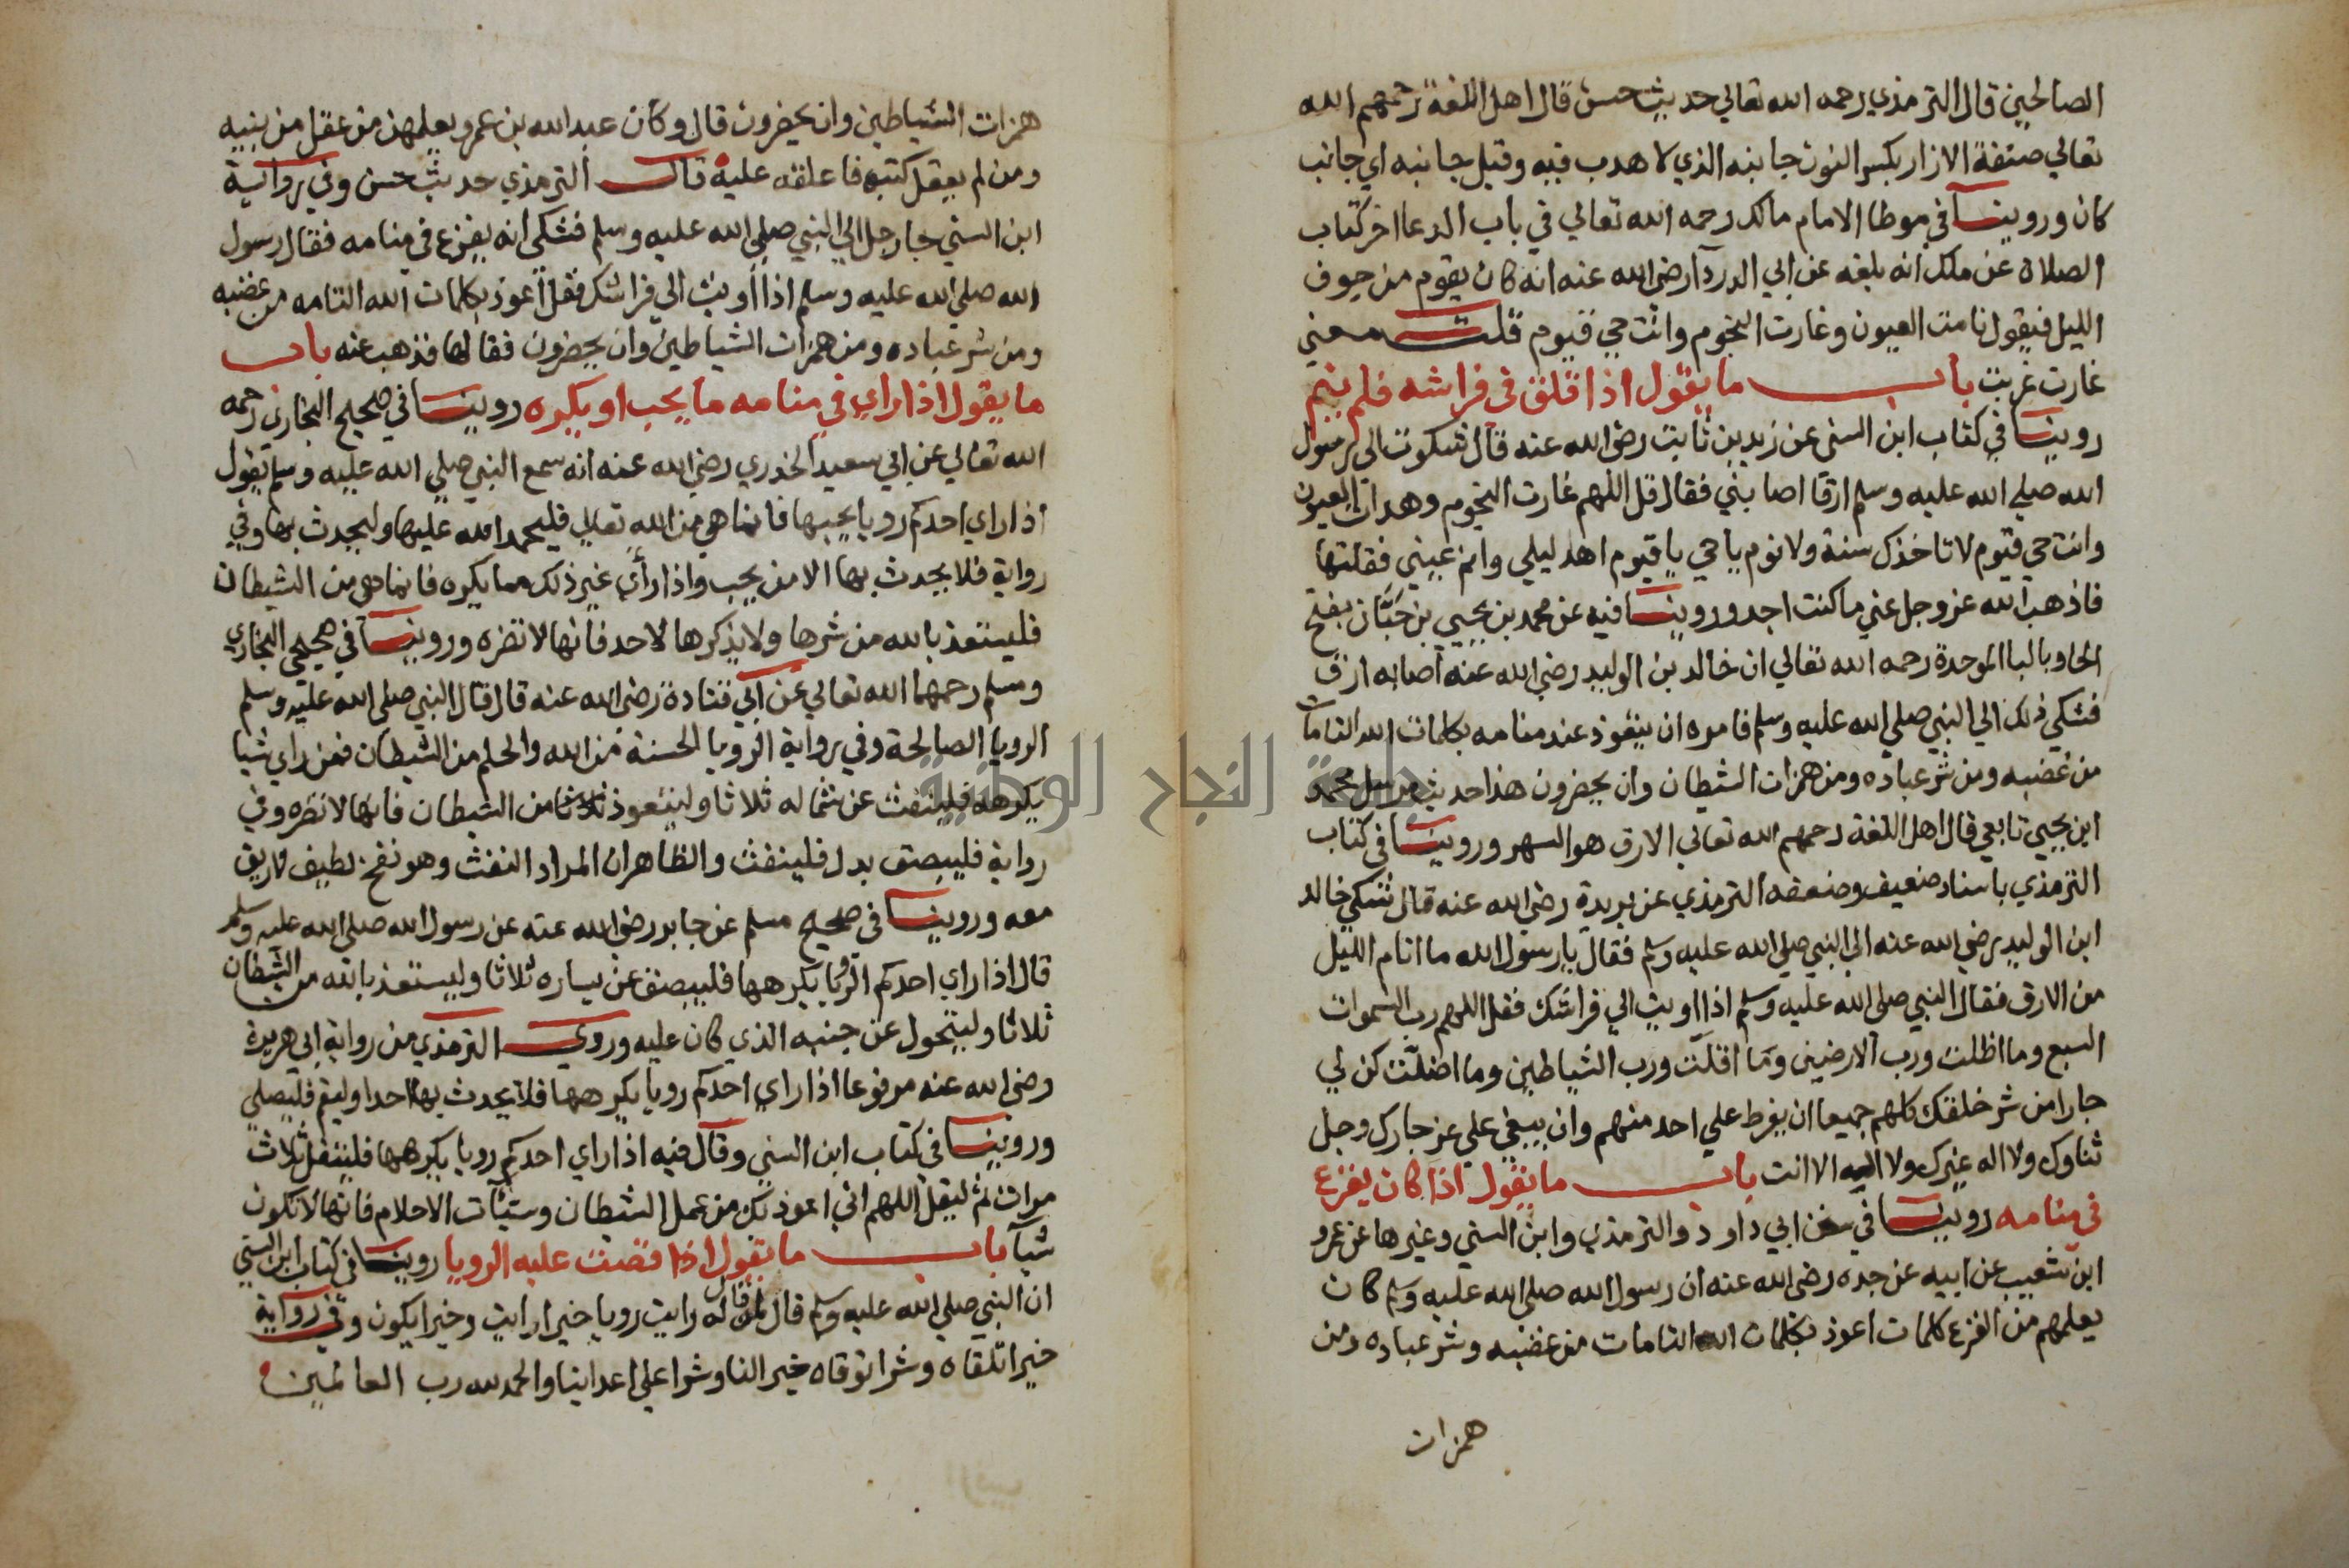 الصالحين قال الترمذي رحمه الله تعالي حديث حسن قال اهل اللغة رحمهم الله
تعالي صنفة الازار بكسر النون جانبه الذي لا هدب فيه وقيل جانبه اي جانب
كان وروينا في موطا الامام مالك رحمه الله تعالي في باب الدعا اخر كتاب
الصلاة عن ملك انه بلغه عن ابي الدردآ رضي الله عنه انه كان يقوم من جوف
الليل فيقول نامت العيون وغارت النجوم وانت حي قيوم قلت معني
غارت غربت باب ما يقول اذا قلق في فراشه فلم ينم
روينا في كتاب ابن السني عن زيد بن ثابت رضي الله عنه قال شكوت الي رسول
الله صلي الله عليه وسلم ارقا اصابني فقال قل اللهم غارت النجوم وهدات العيون
وانت حي قيوم لا تاخذك سنة ولا نوم يا حي يا قيوم اهد ليلي وانم عيني فقلتها
فاذهب الله عز وجل عني ما كنت اجد وروينا فيه عن محمد بن يحيي بن حَبَّان بفتح
الحا وبالبا الموحدة رحمه الله تعالي ان خالد بن الوليد رضي الله عنه اصابه ارق
فشكي ذلك الي النبي صلي الله عليه وسلم فامره ان يتعوذ عند منامه بكلمات الله التامات
من غضبه ومن شر عباده ومن همزات الشيطان وان يحضرون هذا حديث مرسل محمد
ابن يحيي تابعي قال اهل اللغة رحمهم الله تعالي الارق هو السهر وروينا في كتاب
الترمذي باسناد ضعيف وضعفه الترمذي عن بريدة رضي الله عنه قال شكي خالد
ابن الوليد رضي الله عنه الي النبي صلي الله عليه وسلم فقال يا رسول الله ما انام الليل
من الارق فقال النبي صلي الله عليه وسلم اذا اويت الي فراشك فقل اللهم رب السموات
السبع وما اظلت ورب الارضين وما اقلت ورب الشياطين وما اضلّت كن لي
جارا من شر خلقك كلهم جميعا ان يفرط علي احد منهم وان يبغي علي عز جارك وجل
ثناوك ولا اله غيرك ولا اله الا انت باب ما يقول اذا كان يفزع
في منامه روينا في سنن ابي داود والترمذي وابن السني وغيرها عن عمرو
ابن شعيب عن ابيه عن جده رضي الله عنه ان رسول الله صلي الله عليه وسلم كان
يعلمهم من الفزع كلمات اعوذ بكلمات الله التامات من غضبه وشر عباده ومن
همزات
همزات الشياطين وان يحضرون قال وكان عبد الله بن عمرو يعلمهن من عقل من بنيه
ومن لم يعقل كتبه فاعلقه عليه قال الترمذي حديث حسن وفي رواية
ابن السني جا رجل الي النبي صلي الله عليه وسلم فشكي انه يفزع في منامه فقال رسول
الله صلي الله عليه وسلم اذا اويت الي فراشك فقل اعوذ بكلمات الله التامه من غضبه
ومن شر عباده ومن همزات الشياطين وان يحضرون فقالها فذهب عنه باب
ما يقول اذا راي في منامه ما يحب او يكره روينا في صحيح البخاري رحمه
الله تعالي عن ابي سعيد الخدري رضي الله عنه انه سمع النبي صلي الله عليه وسلم يقول
اذا راي احدكم رويا يحبها فانما هي من الله تعالي فليحمد الله عليها وليحدث بها وفي
رواية فلا يحدث بها الا من يحب واذا رأي غير ذلك مما يكره فانما هي من الشيطان
فليستعذ بالله من شرها ولا يذكرها لاحد فانها لا تضره وروينا في صحيحي البخاري
ومسلم رحمهما الله تعالي عن ابي قتادة رضي الله عنه قال قال النبي صلي الله عليه وسلم
الرويا الصالحة وفي رواية الرويا الحسنة من الله والحلم من الشيطان فمن راي شيا
يكرهه فلينفث عن شماله ثلاثا وليتعوذ ثلاثا من الشيطان فانها لا تضره وفي
رواية فليبصق بدل فلينفث والظاهر ان المراد النفث وهو نفخ لطيف لا ريق
معه وروينا في صحيح مسلم عن جابر رضي الله عنه عن رسول الله صلي الله عليه وسلم
قال اذا راي احدكم الرويا يكرهها فليبصق عن يساره ثلاثا وليستعذ بالله من الشيطان
ثلاثا وليتحول عن جنبه الذي كان عليه وروي الترمذي من رواية ابي هريرة
رضي الله عنه مرفوعا اذا راي احدكم رويا يكرهها فلا يحدث بها احدا وليقم فليصلي
وروينا في كتاب ابن السني وقال فيه اذا راي احدكم رويا يكرهها فليتفل ثلاث
مرات ثم ليقل اللهم اني اعوذ بك من عمل الشيطان وسيئات الاحلام فانها لا تكون
شيآ باب ما يقول اذا قصت عليه الرويا روينا في كتاب ابن السني
ان النبي صلي الله عليه وسلم قال لمن قال له رايت رويا خيرا رايت وخيرا يكون وفي رواية
خيرا تلقاه وشرا توقاه خير النا وشرا علي اعداينا والحمد لله رب العالمين
جامعة النجاح الوطنية